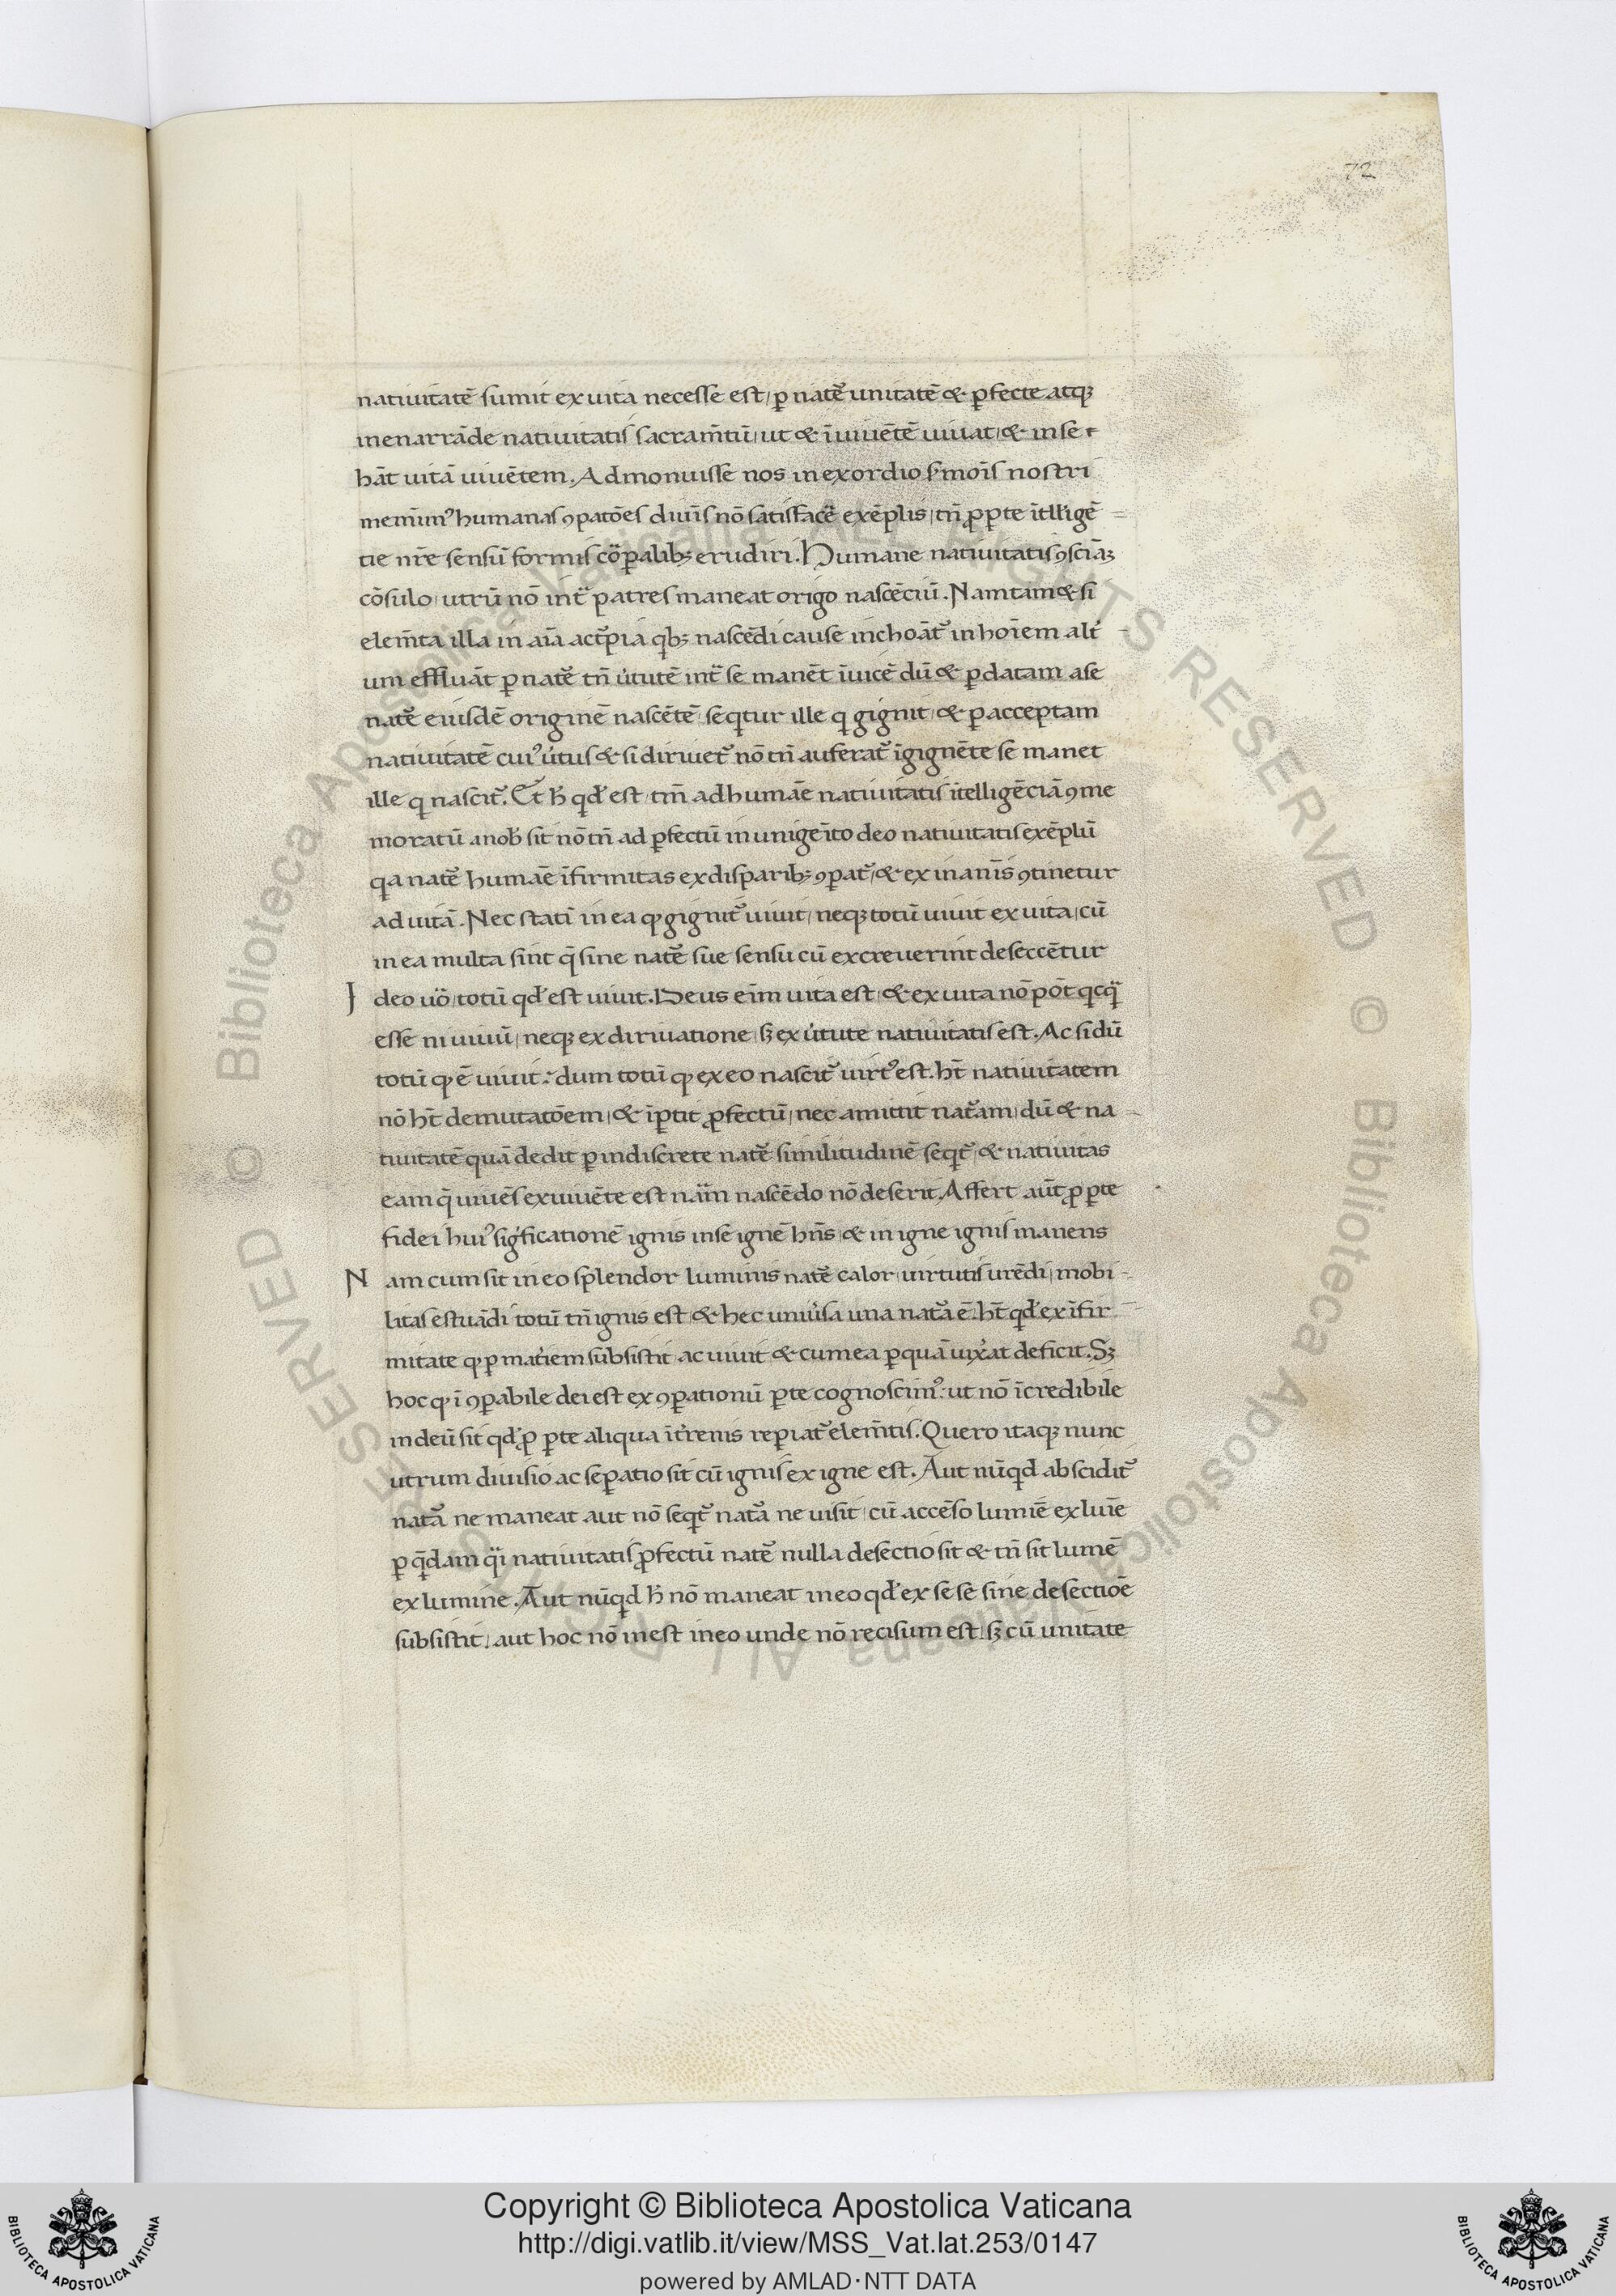 72
natiuitatē sumit ex uita necesse est, ꝑ natẽ unitatē & ꝑfecte atqꝫ
inenarrāde natiuitatis sacram̄tū, ut & ī uiuētē uiuat, & in se
hāt uitā uiuētem. Admonuisse nos in exordio ẜmoīs nostri
memīmꝰ humanas ꝯꝑatōes diuīs nō satisfacẽ exēplis, tn̄ ꝓ ꝑte ītlligē
tie nr̄e sensū formis corꝑalibꝫ erudiri. Humane natiuitatis ꝯsciāꝫ
cōsulo, utrū nō int̃ patres maneat origo nascēciū. Nam tam & si
elem̄ta illa in aīa ac
um effluāt ꝑ natẽ tn̄ u̇tutē int̃ se manēt īuicē dū & ꝑ datam a se
natẽ eiusdē originē nascētē seqͥtur ille qͥ gignit, & ꝑ acceptam
natiuitatē cuiꝰ u̇tus & si diriuet̃ nō tn̄ auferat̃ ī gignēte se manet
ille qͥ nascit̃. Et h̄ qd̛ est tm̄ ad humāe natiuitatis ītelligēciā ꝯme
moratū a nob̛ sit nō tn̄ ad ꝑfectū in unigeīto deo natiuitatis exēplū
qͥa natẽ humāe īfirmitas ex disparibꝫ ꝯꝑat̃, & ex inanīs ꝯtinetur
ad uitā. Nec statī in ea qͦ gignit̃ uiuit, neqꝫ totū uiuit ex uita, cū
in ea multa sint q̄ sine natẽ sue sensu cū excreuerint deseccētur
I deo uo̊ totū qd̛ est uiuit. Deus eīm uita est, & ex uita nō pōt qͥcqͣ̄
esse ni uiuū, neqꝫ ex diriuatione sꝫ ex u̇tute natiuitatis est. Ac si dū
totū qͦ ē uiuit: dum totū qͦ ex eo nascit̃ uirtꝰ est. ht̄ natiuitatem
nō ht̄ demutatōem, & īꝑtit ꝓfectū, nec amittit nat̃am, dū & na
tiuitatē quā dedit ꝑ indiscrete natẽ similitudinē seqͥt̃, & natiuitas
eam q̄ uiuēs ex uiuēte est nãm nascēdo nō deserit. Affert aūt ꝓ ꝑte
fidei huiꝰ sigͥficationē ignis in se ignē hn̄s, & in igne ignis manens
N am cum sit in eo splendor luminis natẽ calor, uirtutis urēdi, mobi
litas estuādi totū tn̄ ignis est, & hec uniu̇sa una nat̃a ē. ht̄ qd̛ ex īfir
mitate qͦ ꝑ mat̛iem subsistit, ac uiuit & cum ea ꝑ quā uix̛at deficit. Sꝫ
hoc qͦ ī ꝯꝑabile dei est ex ꝯꝑationū ꝑte cognoscimꝰ: ut nō īcredibile
in deū sit qd̛ ꝓ ꝑte aliqua īt̛renis reꝑiat̃ elem̄tis. Quero itaqꝫ nunc
utrum diuisio ac seꝑatio sit cū ignis ex igne est. Aut nūqͥd abscidit̃
nat̃a ne maneat aut nō seqͥt̃ nat̃a ne uisit, cū accēso lumīe ex luīe
ꝑ qͣ̄dam qͣ̄i natiuitatis ꝓfectū natẽ nulla desectio sit & tn̄ sit lumē
ex lumine. Aut nūqͥd h̄ nō maneat in eo qd̛ ex sese sine desectiōe
subsistit, aut hoc nō inest in eo unde nō recisum est, sꝫ cū unitate
© Biblioteca Apostolica Vaticana ALL RIGHTS RESERVED
Copyright © Biblioteca Apostolica Vaticana
http://digi.vatlib.it/view/MSS_Vat.lat.253/0147
powered by AMLAD·NTT DATA
BIBLIOTECA APOSTOLICA VATICANA
BIBLIOTECA APOSTOLICA VATICANA